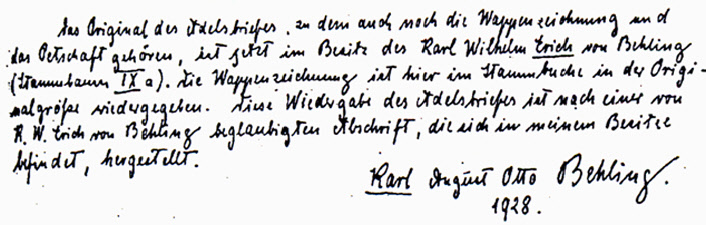 Das Original des Adelsbriefes, zu dem auch noch die Wappenzeichnung und
das Petschaft gehören, ist jetzt im Besitz des Karl Wilhelm Erich von Behling
(Stammbaum IX a). Die Wappenzeichnung ist hier im Stammbuche in der Origi-
nalgröße wiedergegeben. Diese Wiedergabe des Adelsbriefes ist nach einer von
K. W. Erich von Behling beglaubigten Abschrift, die sich in meinem Besitze
befindet, hergestellt.
Karl August Otto Behling.
1928.